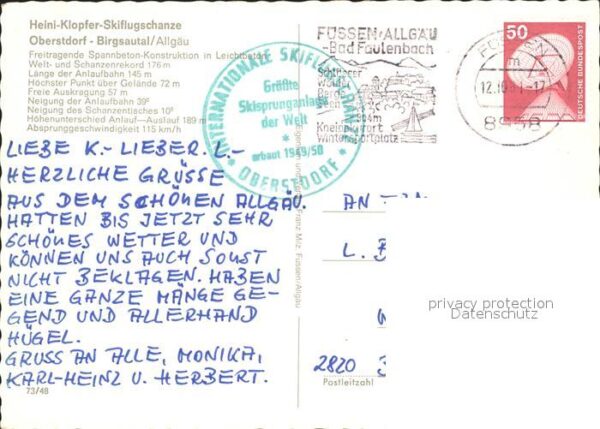 Heini-Klopfer-Skiflugschanze
Oberstdorf - Birgsautal/Allgäu
Freitragende Spannbeton-Konstruktion in Leichtbeton
Welt- und Schanzenrekord 176 m
Länge der Anlaufbahn 145 m
Höchster Punkt über Gelände 72 m
Freie Auskragung 57 m
Neigung der Anlaufbahn 39°
Neigung des Schanzentisches 10°
Höhenunterschied Anlauf-Auslauf 189 m
Absprunggeschwindigkeit 115 km/h
INTERNATIONALE SKIFLUGSCHANZE
Größte
Skisprunganlage
der Welt
erbaut 1949/50
* OBERSTDORF *
FÜSSEN/ALLGÄU
-Bad Faulenbach
Kneippkurort
Wintersportplatz
FÜSSEN
m
-17
8958
50
DEUTSCHE BUNDESPOST
LIEBE K.- LIEBER. L.-
HERZLICHE GRÜSSE
AUS DEM SCHÖNEN ALLGÄU.
HATTEN BIS JETZT SEHR
SCHÖNES WETTER UND
KÖNNEN UNS AUCH SONST
NICHT BEKLAGEN. HABEN
EINE GANZE MÄNGE GE-
GEND UND ALLERHAND
HÜGEL.
GRUSS AN ALLE, MONIKA,
KARL-HEINZ U. HERBERT.
73/48
Franz Milz, Füssen/Allgäu
AN
L. B
2820
Postleitzahl
privacy protection
Datenschutz